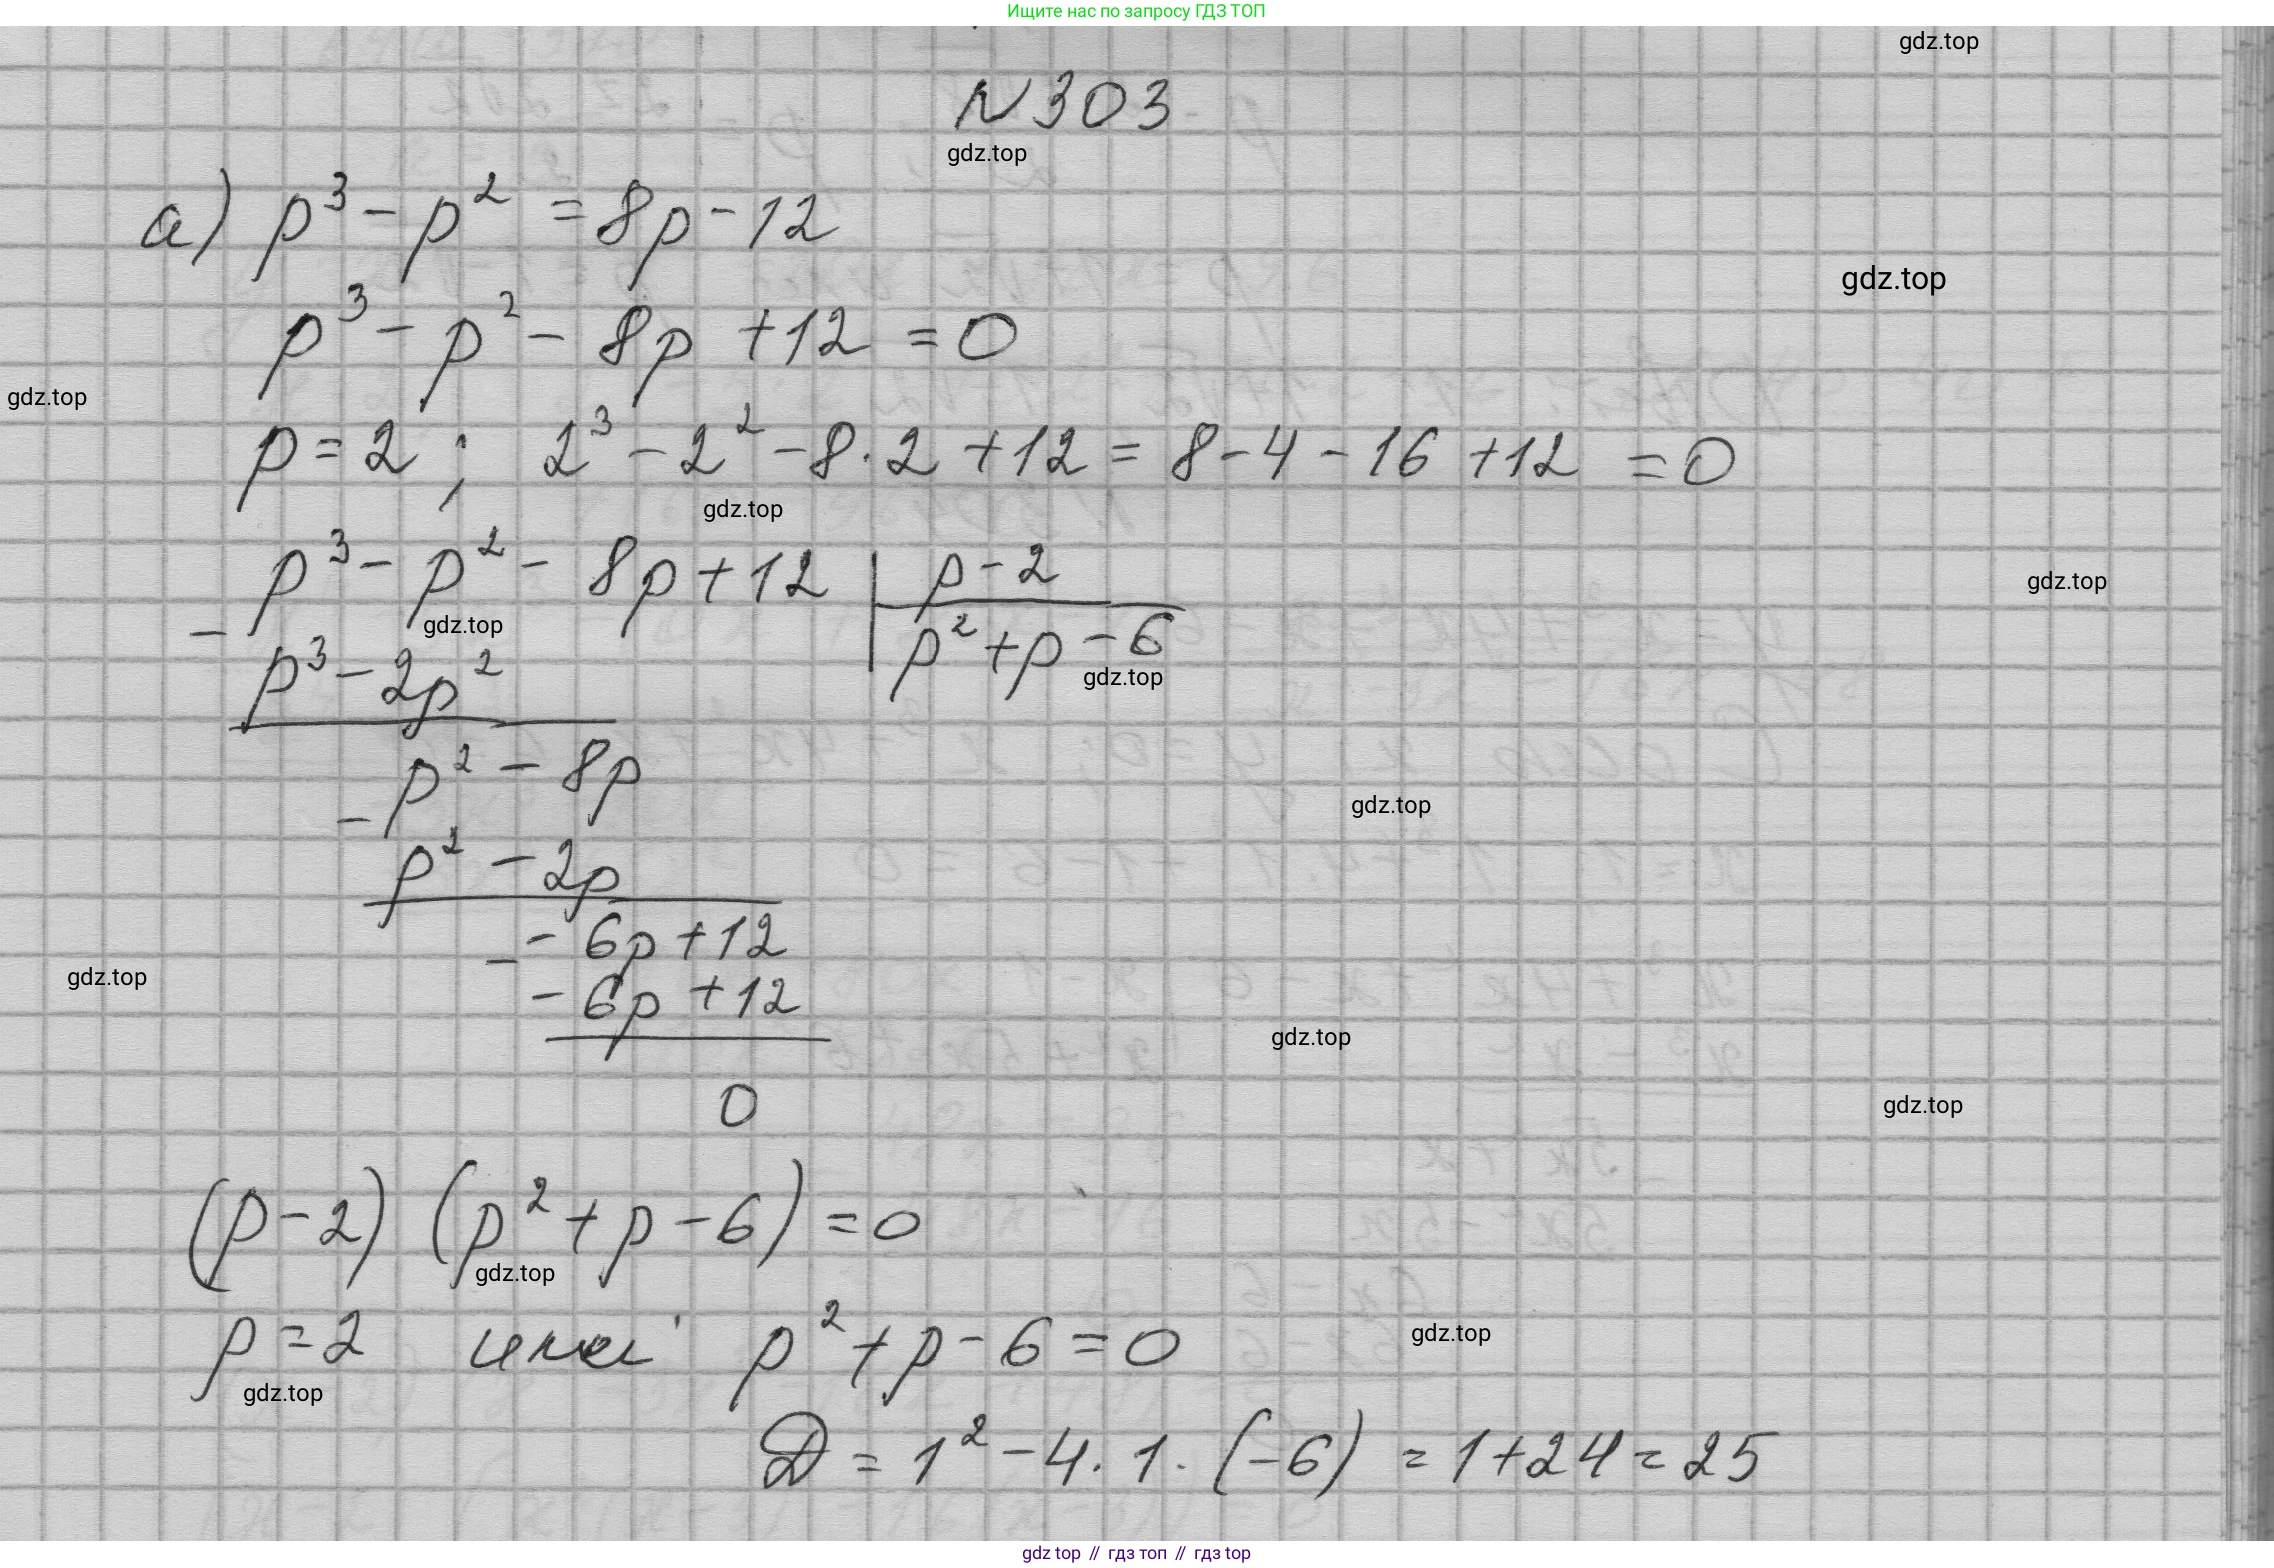 Ищите нас по запросу ГДЗ ТОП
gdz.top
N 303
gdz.top
а) p³ - p² = 8p - 12
gdz.top
p³ - p² - 8p + 12 = 0
gdz.top
p = 2 ; 2³ - 2² - 8 · 2 + 12 = 8 - 4 - 16 + 12 = 0
gdz.top
p³ - p² - 8p + 12 | p - 2
gdz.top
gdz.top
- p³ - 2p² | p² + p - 6
gdz.top
p² - 8p
gdz.top
- p² - 2p
- 6p + 12
gdz.top
- - 6p + 12
gdz.top
0
gdz.top
(p - 2) (p² + p - 6) = 0
gdz.top
p = 2 или p² + p - 6 = 0
gdz.top
gdz.top
Д = 1² - 4 · 1 · (-6) = 1 + 24 = 25
gdz top // гдз топ // гдз top